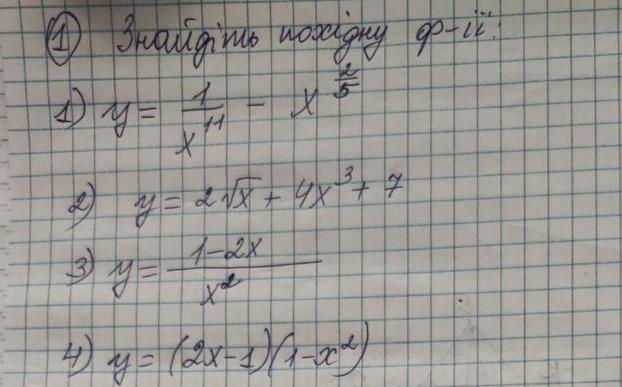 ① Знайдіть похідну ф-ії:
1) y = 1/x¹¹ − x^(2/5)
2) y = 2√x + 4x³ + 7
3) y = (1−2x)/x²
4) y = (2x−1)(1−x²)